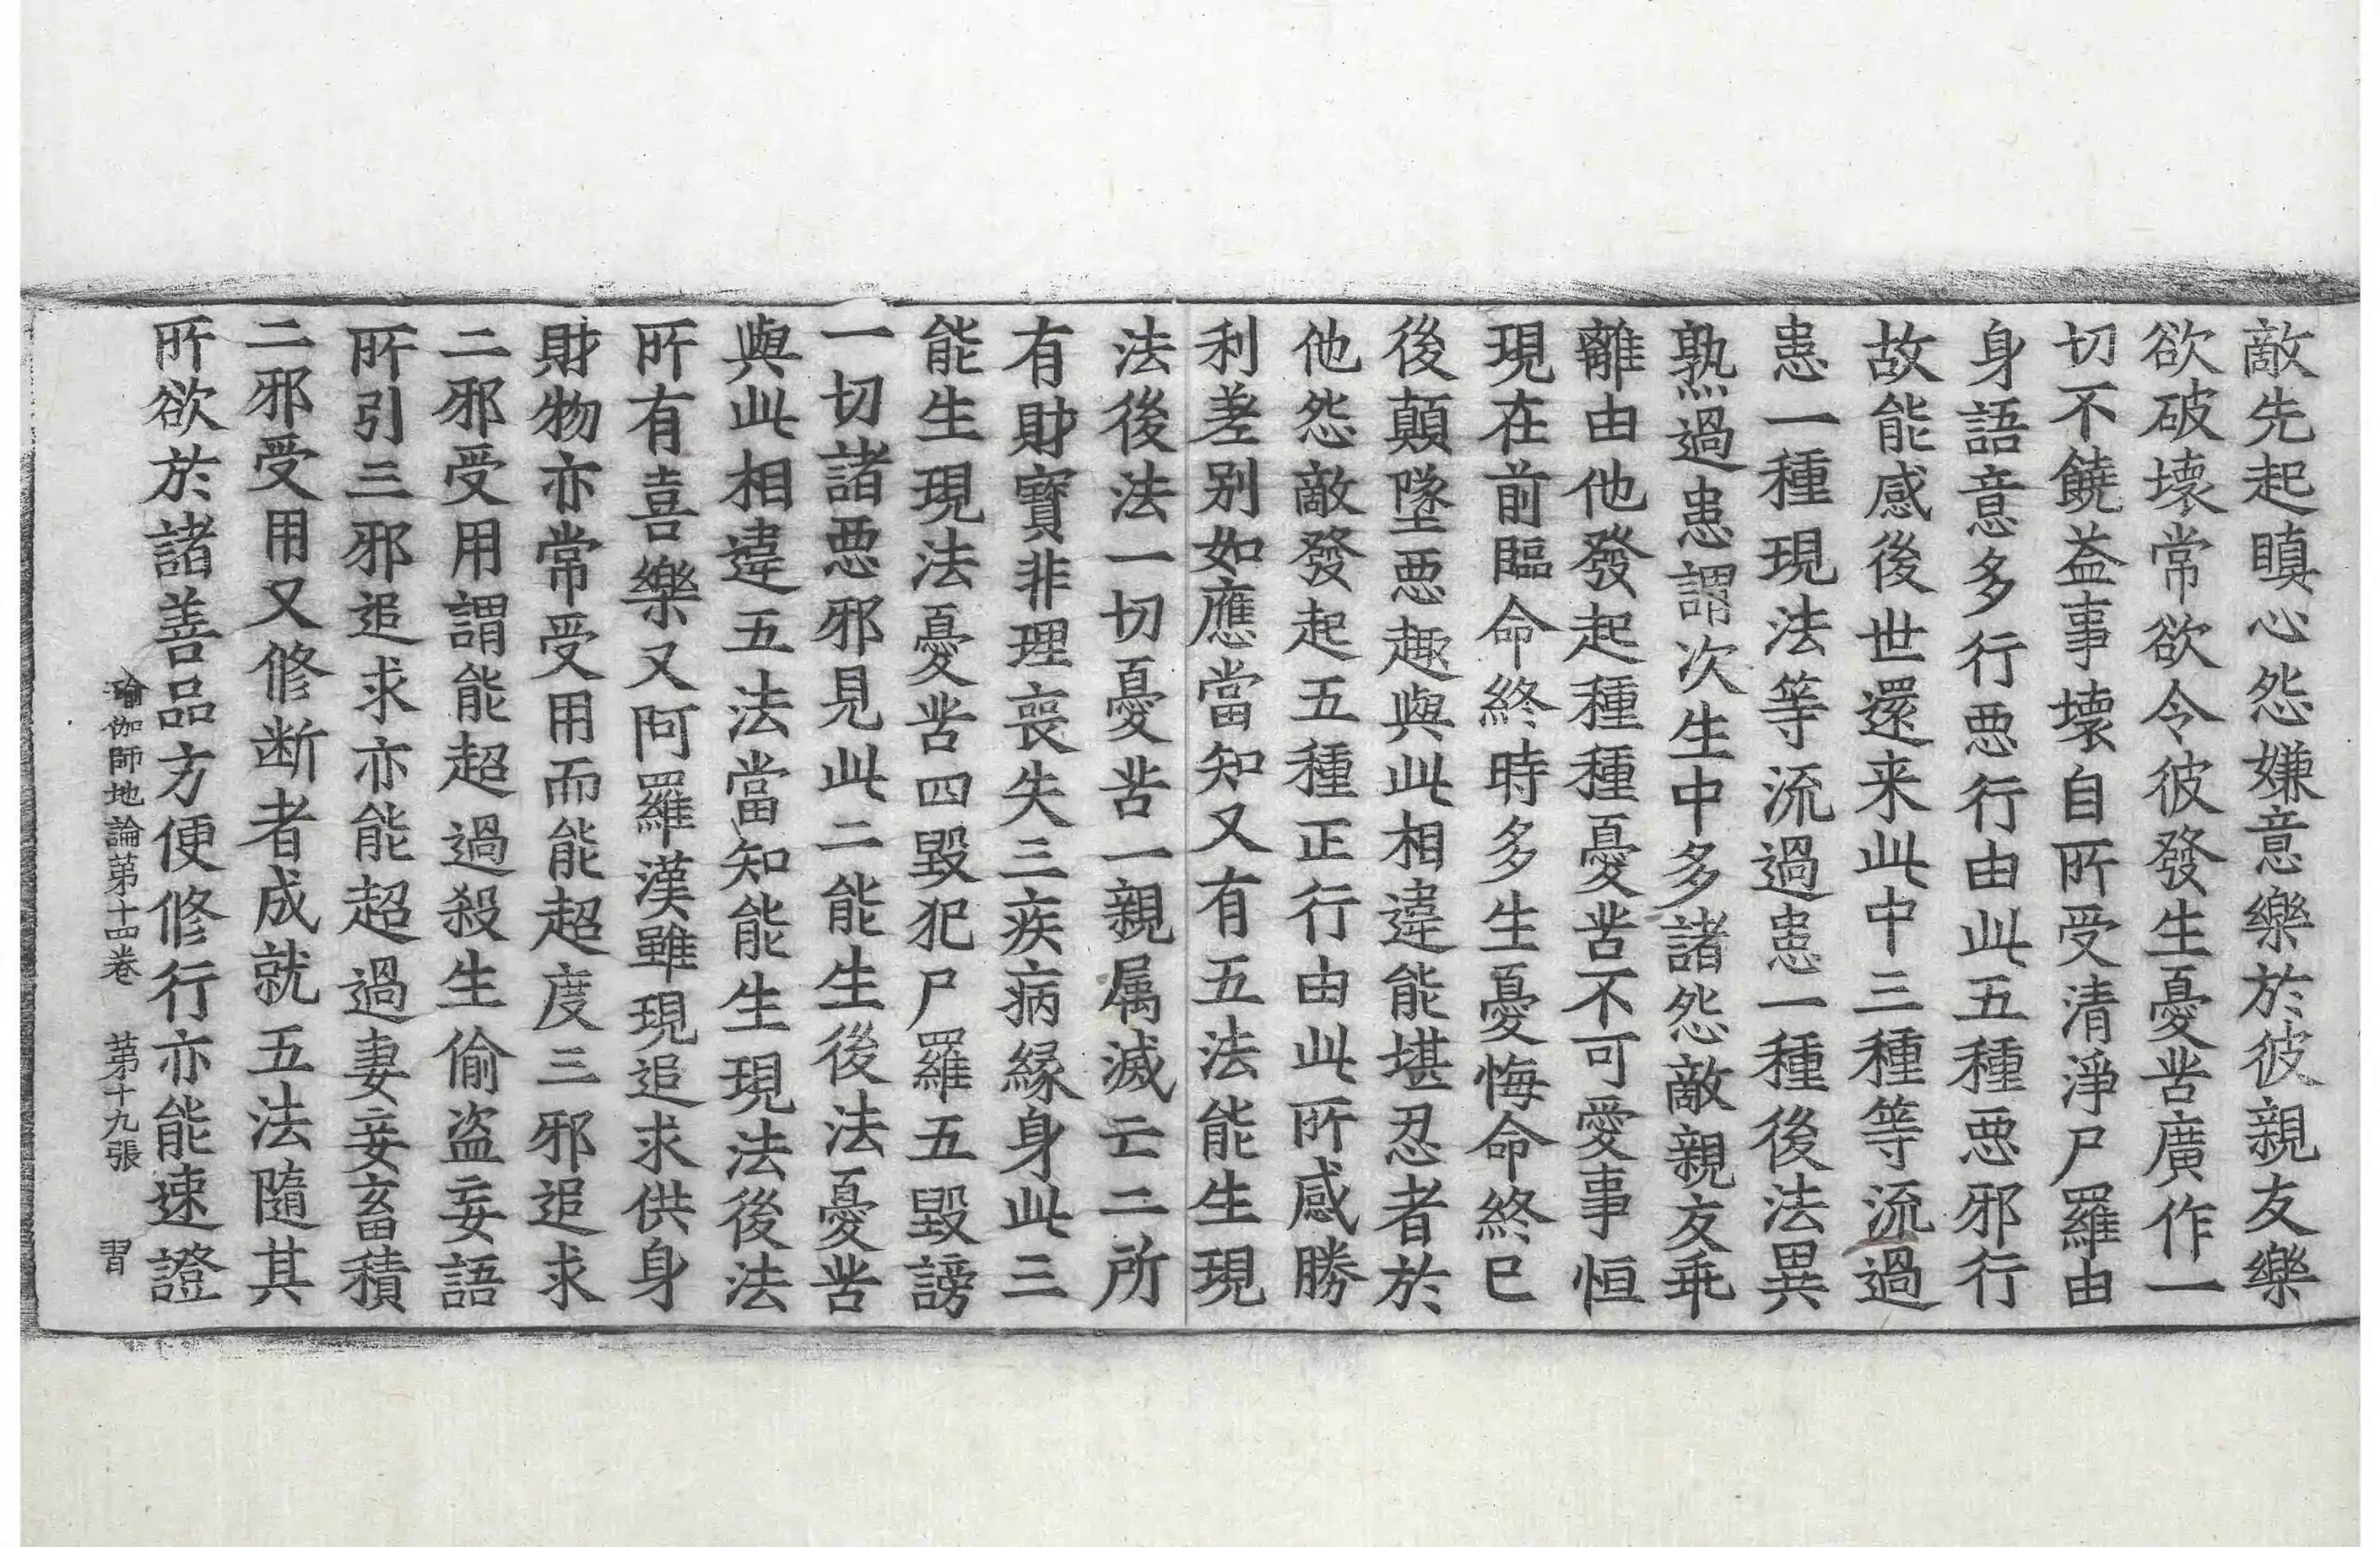 敵先起瞋心怨嫌意樂於彼親友樂
欲破壞常欲令彼發生憂苦廣作一
切不饒益事壞自所受清淨尸羅由
身語意多行惡行由此五種惡邪行
故能感後世還来此中三種等流過
患一種現法等流過患一種後法異
熟過患謂次生中多諸怨敵親友乖
離由他發起種種憂苦不可愛事恒
現在前臨命終時多生憂悔命終已
後顛墜惡趣與此相違能堪忍者於
他怨敵發起五種正行由此所感勝
利差别如應當知又有五法能生現
法後法一切憂苦一親属滅亡二所
有財寶非理喪失三疾病緣身此三
能生現法憂苦四毀犯尸羅五毀謗
一切諸惡邪見此二能生後法憂苦
與此相違五法當知能生現法後法
所有喜樂又阿羅漢雖現追求供身
財物亦常受用而能超度三邪追求
二邪受用謂能超過殺生偷盜妄語
所引三邪追求亦能超過妻妾畜積
二邪受用又修断者成就五法隨其
所欲於諸善品方便修行亦能速證
瑜伽師地論苐十四卷 苐十九張 習